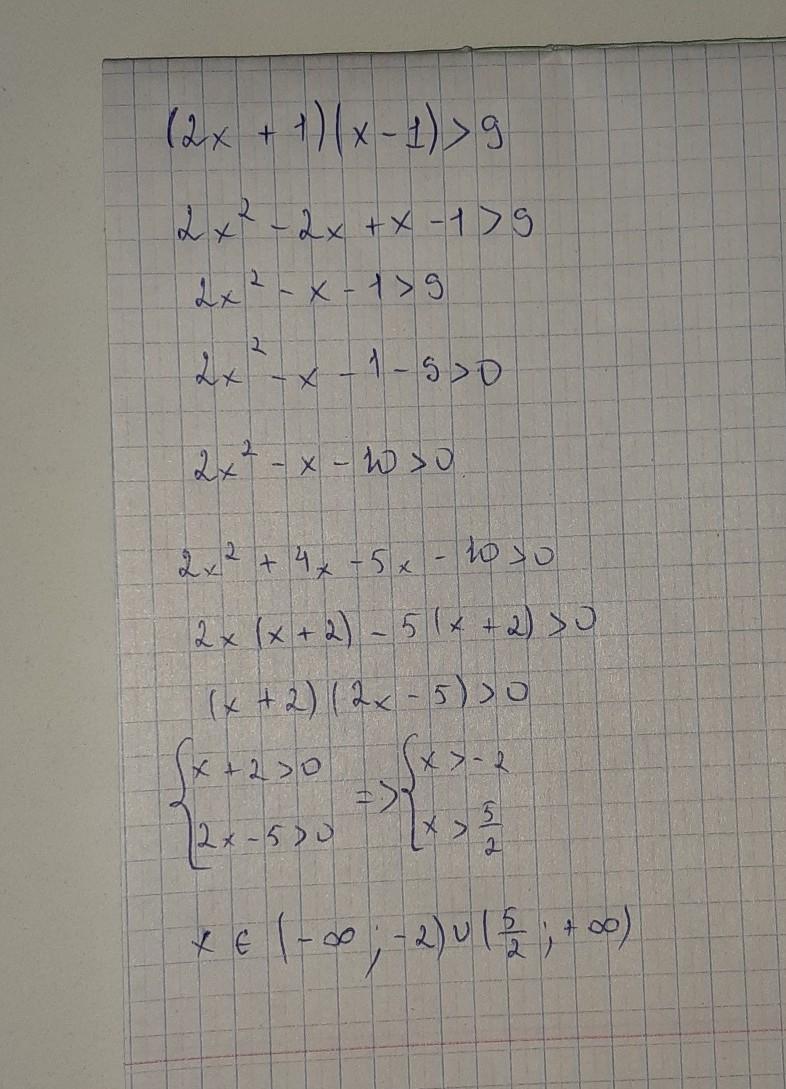 (2x + 1)(x - 1) > 9
2x² - 2x + x - 1 > 9
2x² - x - 1 > 9
2x² - x - 1 - 9 > 0
2x² - x - 10 > 0
2x² + 4x - 5x - 10 > 0
2x (x + 2) - 5 (x + 2) > 0
(x + 2) (2x - 5) > 0
{ x + 2 > 0 => { x > -2
2x - 5 > 0 x > 5/2
x ∈ (-∞ ; -2) ∪ (5/2 ; +∞)